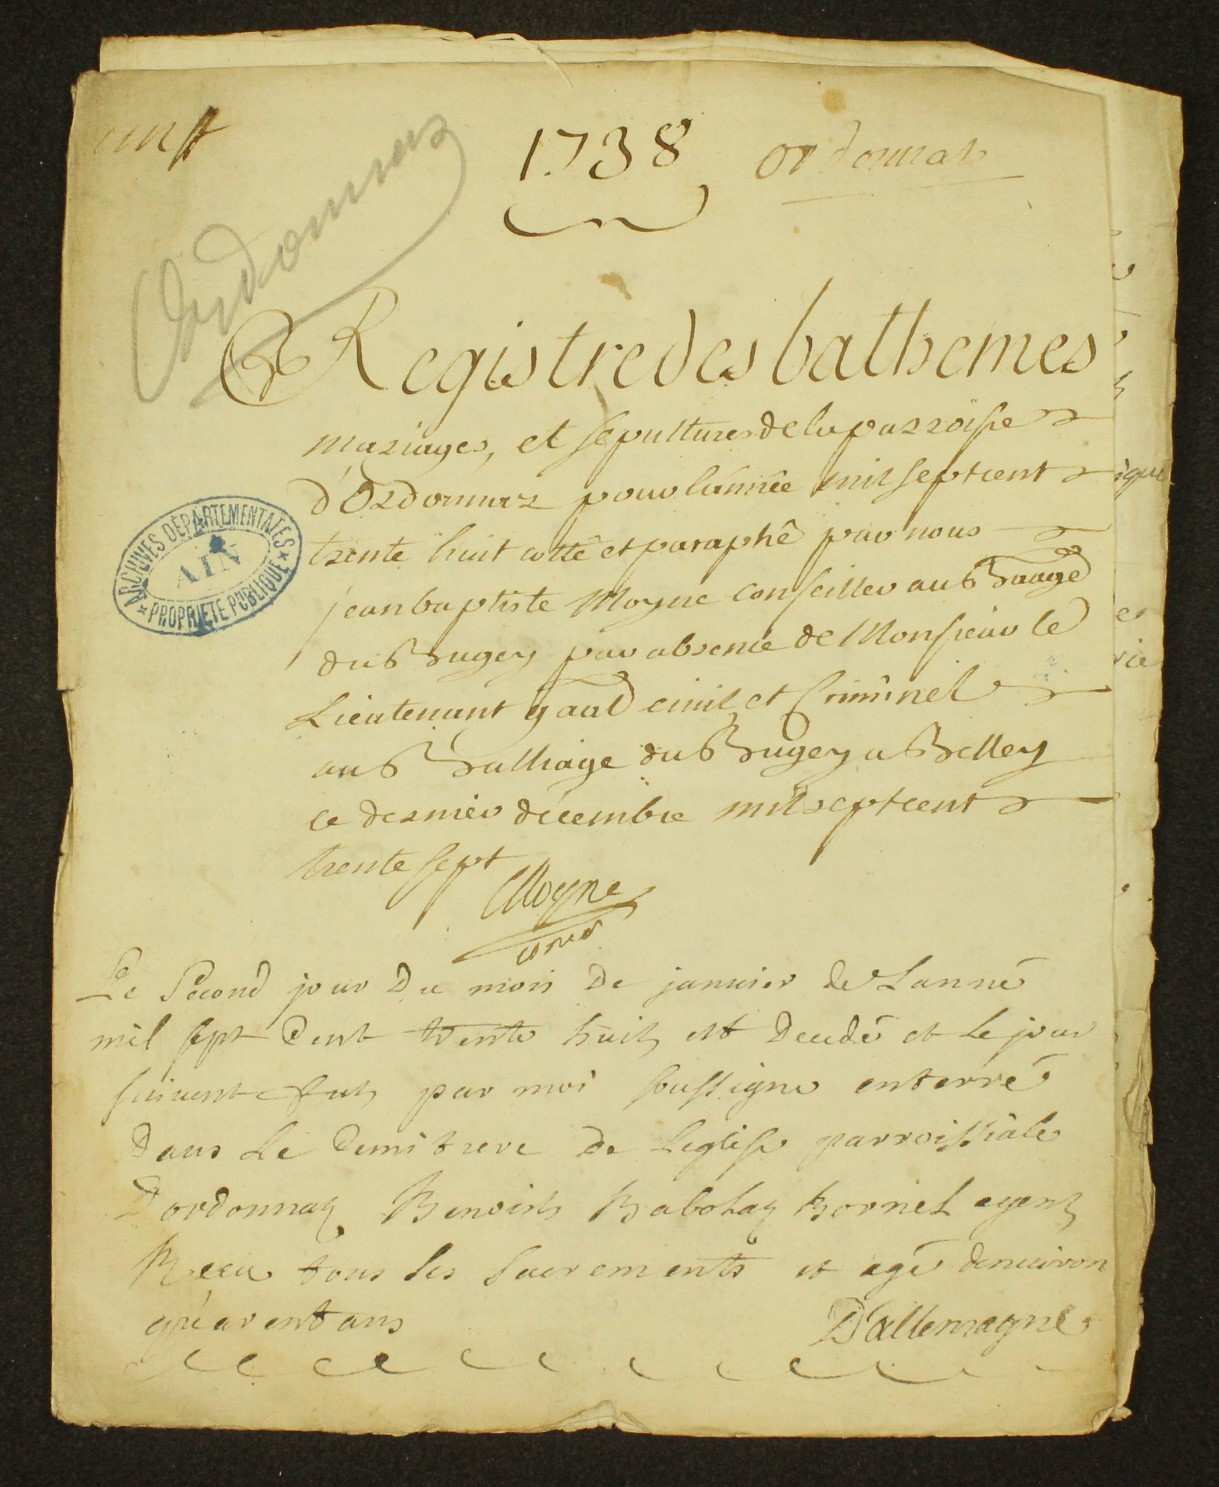 1738 Ordonnas
Ordonnaz
Registre des bathemes
mariages, et sepultures de la parroisse
d'Ordonnaz pour l'année mil sept cent
trente huit cotté et paraphé par nous
jean baptiste Moyne Conseiller au Baage
du Bugey par absence de Monsieur le
Lieutenant gnal civil et Criminel
au Balliage du Bugey a Belley
ce dernier decembre mil sept cent
trente sept
Moyne
ARCHIVES DÉPARTEMENTALES
AIN
PROPRIÉTÉ PUBLIQUE
Le Second jour Du mois De janvier de Lanné
mil sept Cent trente huit est Decedé et le jour
suivent fut par moi soussigne enterré
Dans Le Cemitiere de Leglise parroissiale
Dordonnaz Benoist Babolaz Bornel ayent
Receu tous les Sacrements et agé denviron
quarent ans D'allemagne